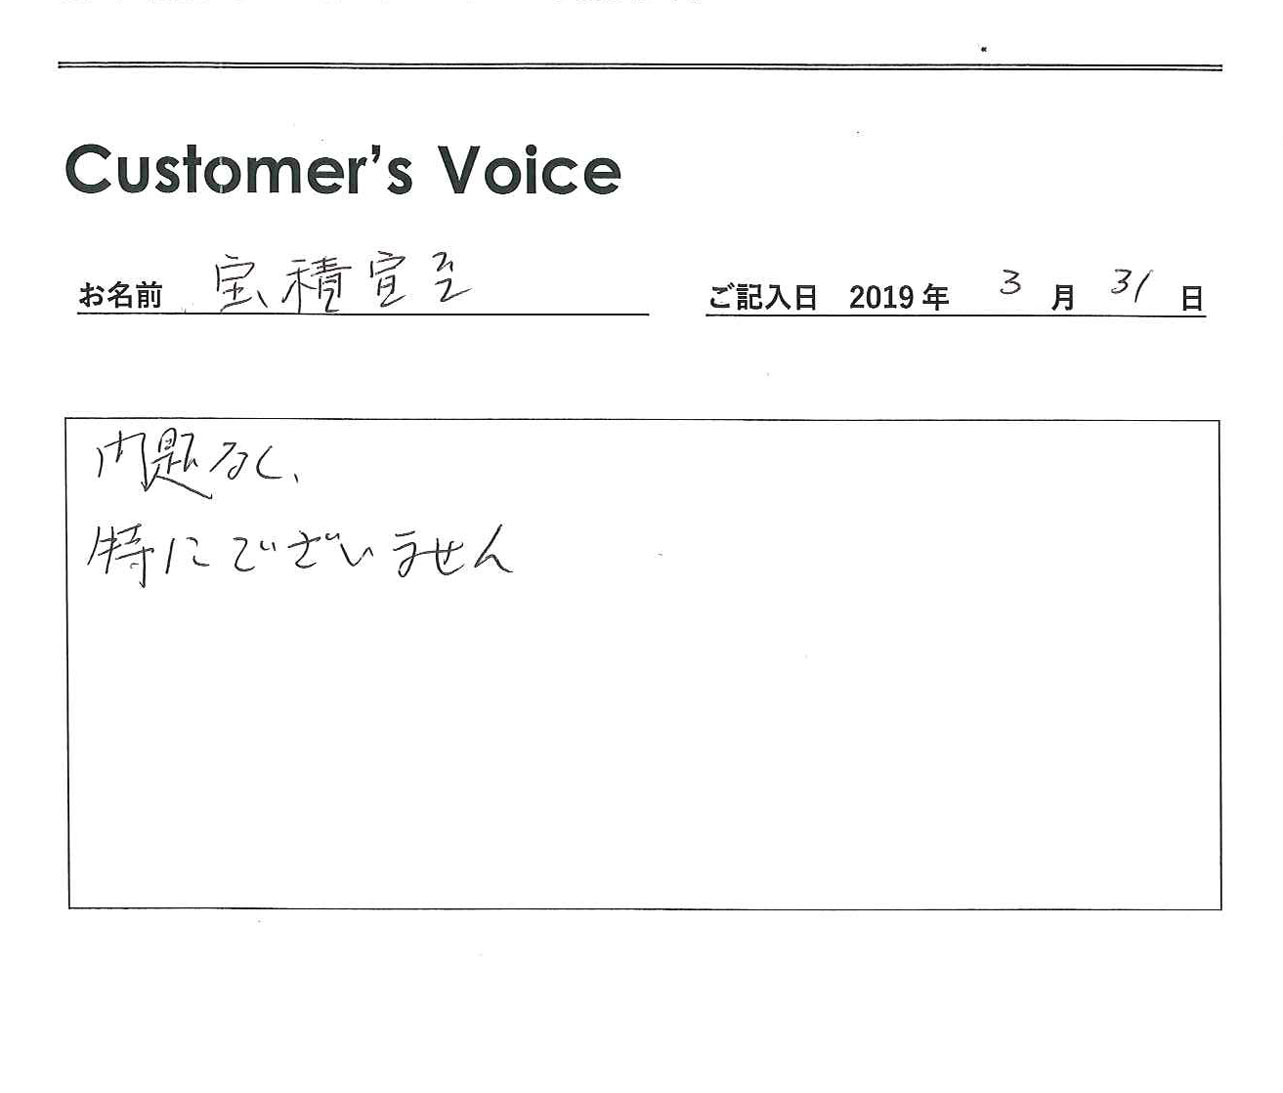 Customer's Voice
お名前 宝積宣至
ご記入日 2019年 3月 31日
問題なし、
特にございません